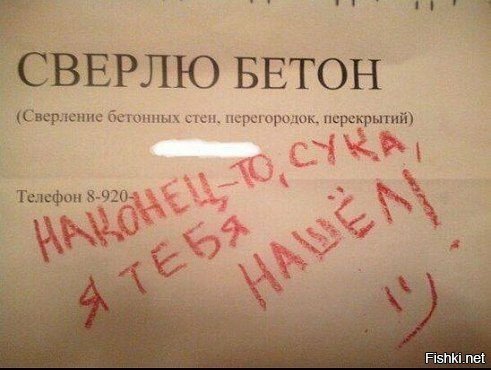 СВЕРЛЮ БЕТОН
(Сверление бетонных стен, перегородок, перекрытий)
Телефон 8-920-
НАКОНЕЦ-ТО, СУКА,
Я ТЕБЯ
НАШЁЛ!
Fishki.net